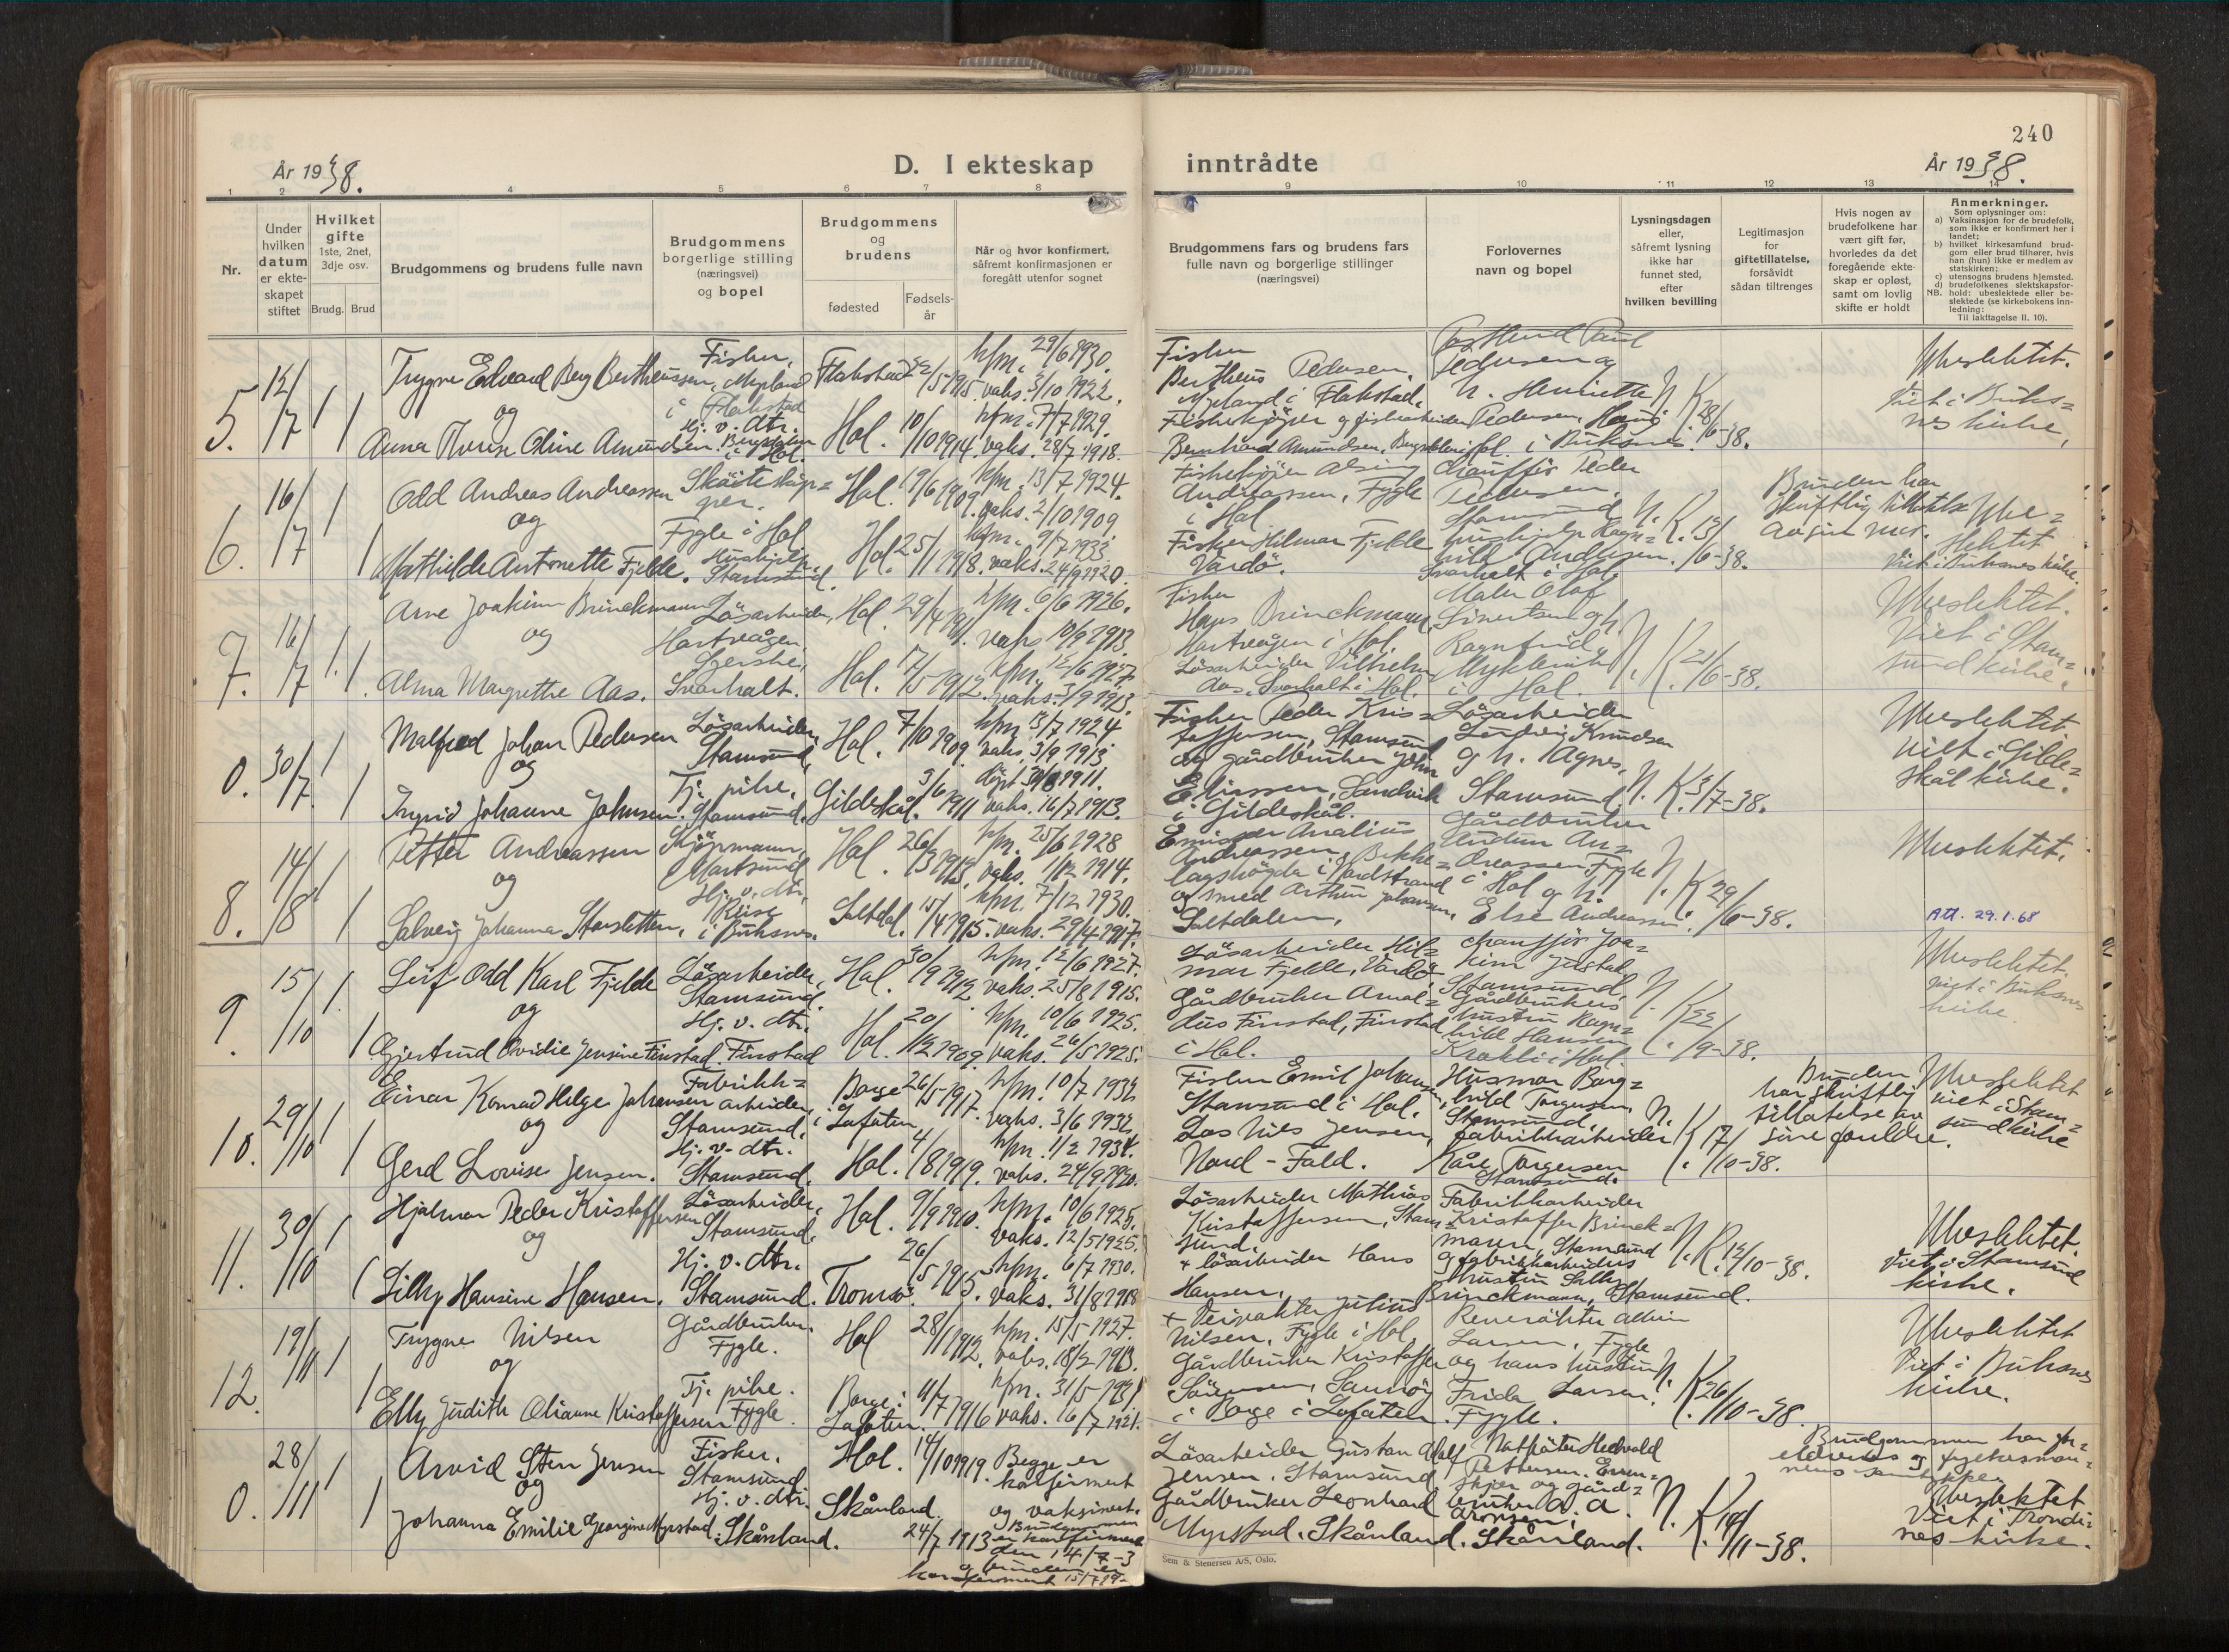 240
År 1938.
D. I ekteskap inntrådte
År 1938.
1 2 4 5 6 7 8 9 10 11 12 13 14
Nr.
Under hvilken datum er ekteskapet stiftet
Hvilket gifte
1ste, 2net, 3dje osv.
Brudg. Brud
Brudgommens og brudens fulle navn
Brudgommens borgerlige stilling (næringsvei) og bopel
Brudgommens og brudens
fødested
Fødselsår
Når og hvor konfirmert, såfremt konfirmasjonen er foregått utenfor sognet
Brudgommens fars og brudens fars fulle navn og borgerlige stillinger (næringsvei)
Forlovernes navn og bopel
Lysningsdagen eller, såfremt lysning ikke har funnet sted, efter hvilken bevilling
Legitimasjon for giftetillatelse, forsåvidt sådan tiltrenges
Hvis nogen av brudefolkene har vært gift før, hvorledes da det foregående ekteskap er opløst, samt om lovlig skifte er holdt
Anmerkninger.
Som oplysninger om:
a) Vaksinasjon for de brudefolk, som ikke er konfirmert her i landet;
b) hvilket kirkesamfund brudgom eller brud tilhører, hvis han (hun) ikke er medlem av statskirken;
c) utensogns brudens hjemsted.
d) brudefolkenes slektskapsforhold: ubeslektede eller beslektede (se kirkebokens innledning:
NB. Til iakttagelse II. 10).
5. 12/7 1 1
Trygve Edvard Berg Bertheussen,
og
Anna Therese Oline Amundsen.
Fisker, Myrland i Flakstad
Hj. v. dtr.
i Hol.
Flakstad 22/5 1915. kfm. 29/6 1930. vaks. 3/10 1922.
Hol. 10/10 1914. kfm. 7/7 1929. vaks. 28/7 1918.
Fisker Bertheus Pedersen, Myrland i Flakstad.
Bernhard Amundsen,
Pedersen og h. Henriette Pedersen,
i Buksnes.
N. K. 28/6-38.
Ubeslektet.
Viet i Buksnes kirke.
6. 16/7 1 1
Odd Andreas Andreassen
og
Mathilde Antonette Fjelde.
Fygle i Hol
Stamsund.
Hol. 19/6 1909. kfm. 13/7 1924. vaks. 2/10 1909
Hol. 25/1 1918. kfm. 9/7 1933 vaks. 24/9 1920.
Fiskekjøper Alsing Andreassen, Fygle i Hol
Fisker Hilmar Fjelde Vardø.
Chauffør Peder Pedersen, Stamsund
Svarholt i Hol
N. K. 13/6-38.
Bruden har skriftlig tillatelse av sin mor.
Ubeslektet
Viet i Buksnes kirke.
7. 16/7 1 1
Arne Joakim Brinckmann
og
Alma Margrethe Aas.
Løsarbeider, Hartvågen.
Svarholt.
Hol. 29/4 1911. kfm. 6/6 1926. vaks 10/9 1913.
Hol. 17/5 1912. kfm. 12/6 1927. vaks. 3/9 1913.
Fisker Hans Brinckmann, Hartvågen i Hol.
Løsarbeider Vilhelm Aas, Svarholt i Hol.
Maler Olaf Sivertsen og h. Ragnfrid, i Hol.
N. K. 21/6-38.
Ubeslektet.
Viet i Stamsund kirke.
0. 30/7. 1 1
Malfred Johan Pedersen
og
Ingrid Johanne Johnsen.
Løsarbeider, Stamsund,
Tj. pike, Stamsund.
Hol. 7/10 1909. kfm 13/7 1924 vaks. 3/9 1913
Gildeskål. 3/6 1911 døpt 1911. vaks. 16/7 1913.
Fisker Peder Kristoffersen, Stamsund
og gårdbruker John Eliassen, Sandvik i Gildeskål.
Løsarbeider Ludvig Knudsen og h. Agnes, Stamsund.
N. K. 3/7-38.
Ubeslektet
viet i Gildeskål kirke.
8. 14/8 1 1
Petter Andreassen
og
Solveig Johanna Storsletten.
Kjøpmann, Mortsund
Hj. v. dtr,
i Buksnes.
Hol. 26/3 1913. kfm. 25/6 1928 vaks. 1914.
Saltdal. 15/4 1915. kfm. 7/12 1930. vaks. 29/4 1917.
Andreassen,
og smed Arthur Johansen, Saltdalen.
Gårdbruker Audun Andreassen Fygle i Hol og h. Else Andreassen.
N. K. 29/6-38.
Ubeslektet.
Att. 29.1.68
9. 15/10 1 1
Leif Odd Karl Fjelde
og
Gjertrud Ovidie Jensine Finstad.
Løsarbeider, Stamsund.
Hj. v. dtr. Finstad
Hol. 30/9 1912 kfm. 12/6 1927. vaks. 25/8 1915.
Hol. 20/12 1909. kfm. 10/6 1925. vaks. 26/5 1925.
Løsarbeider Hilmar Fjelde, Vardø.
Gårdbruker Arnoldus Finstad, Finstad i Hol.
Chauffør Joakim Justad, Stamsund,
Gårdbrukers hustru Ragnhild Hansen i Hol.
N. K. 22/9-38.
Ubeslektet.
viet i Buksnes kirke.
10. 29/10 1 1
Einar Konrad Helge Johansen
og
Gerd Lovise Jensen.
Fabrikkarbeider, Stamsund.
Hj. v. dtr. Stamsund.
Borge i Lofoten 26/5 1917. kfm. 10/7 1932 vaks. 3/6 1932.
Hol. 4/8 1919. kfm. 11/2 1934. vaks. 24/9 1920.
Fisker Emil Johansen, Stamsund i Hol.
Los Nils Jensen, Nord-Fold.
Husmor Borghild Torgersen, Stamsund,
fabrikkarbeider Kåre Torgersen Stamsund.
N. K. 17/10-38.
Bruden har skriftlig tillatelse av sine foreldre.
Ubeslektet
viet i Stamsund kirke
11. 30/10 1 1
Hjalmar Peder Kristoffersen
og
Lilly Hansine Hansen.
Løsarbeider, Stamsund.
Hj. v. dtr. Stamsund.
Hol. 9/9 1910. kfm. 10/6 1925. vaks. 12/5 1925.
Tromsø. 26/5 1915. kfm. 6/7 1930. vaks. 31/8 1918
Løsarbeider Mathias Kristoffersen, Stamsund.
+ løsarbeider Hans Hansen,
Fabrikkarbeider Kristoffer Brinckmann, Stamsund
og fabrikkarbeiders hustru Lilly Brinckmann, Stamsund.
N. K. 12/10-38.
Ubeslektet.
Viet i Stamsund kirke.
12. 19/11 1 1
Trygve Nilsen
og
Elly Judith Olianne Kristoffersen
Gårdbruker, Fygle.
Tj. pike. Fygle.
Hol 28/1 1912. kfm. 15/5 1927. vaks. 18/2 1913.
Borge i Lofoten. 11/7 1916 kfm. 31/5 1931 vaks. 16/7 1921.
+ Veivokter Julius Nilsen, Fygle i Hol.
Gårdbruker Kristoffer Sørensen, i Borge i Lofoten.
Larsen, Fygle og hans hustru Frida Larsen, Fygle.
N. K. 26/10-38.
Ubeslektet
Viet i Buksnes kirke.
0. 28/11 1 1
Arvid Sten Jensen
og
Johanna Emilie Georgine Myrstad.
Fisker. Stamsund
Hj. v. dtr. Skånland.
Hol. 14/10 1919.
Skånland. 24/7 1913
Begge er konfirmert og vaksinert.
Brudgommen er konfirmert den 14/7-3
og bruden er konfirmert 15/7 19-
Løsarbeider Gustav Adolf Jensen, Stamsund
Gårdbruker Leonhard Myrstad, Skånland.
Pettersen.
og gårdbruker A. A. Aronsen, Skånland.
N. K. 14/11-38.
Brudgommen har foreldrenes og fylkesmannens samtykke.
Ubeslektet
Viet i Trondenes kirke.
Sem & Stenersen A/S, Oslo.